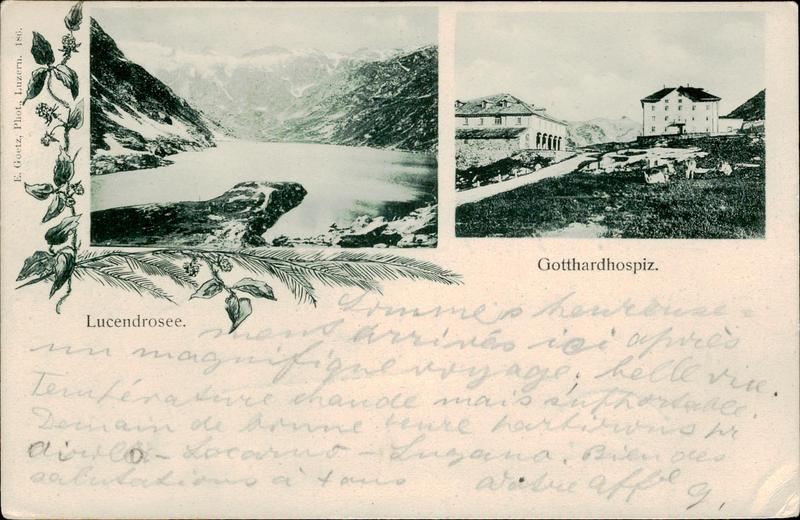 E. Goetz, Phot., Luzern. 186.
Gotthardhospiz.
Lucendrosee.
Sommes heureuse=
ment arrivés ici après
un magnifique voyage, belle vue.
Température chaude mais supportable.
Demain de bonne heure partirons pr
Locarno - Lugano. Bien des
salutations à tous Votre affle
G.